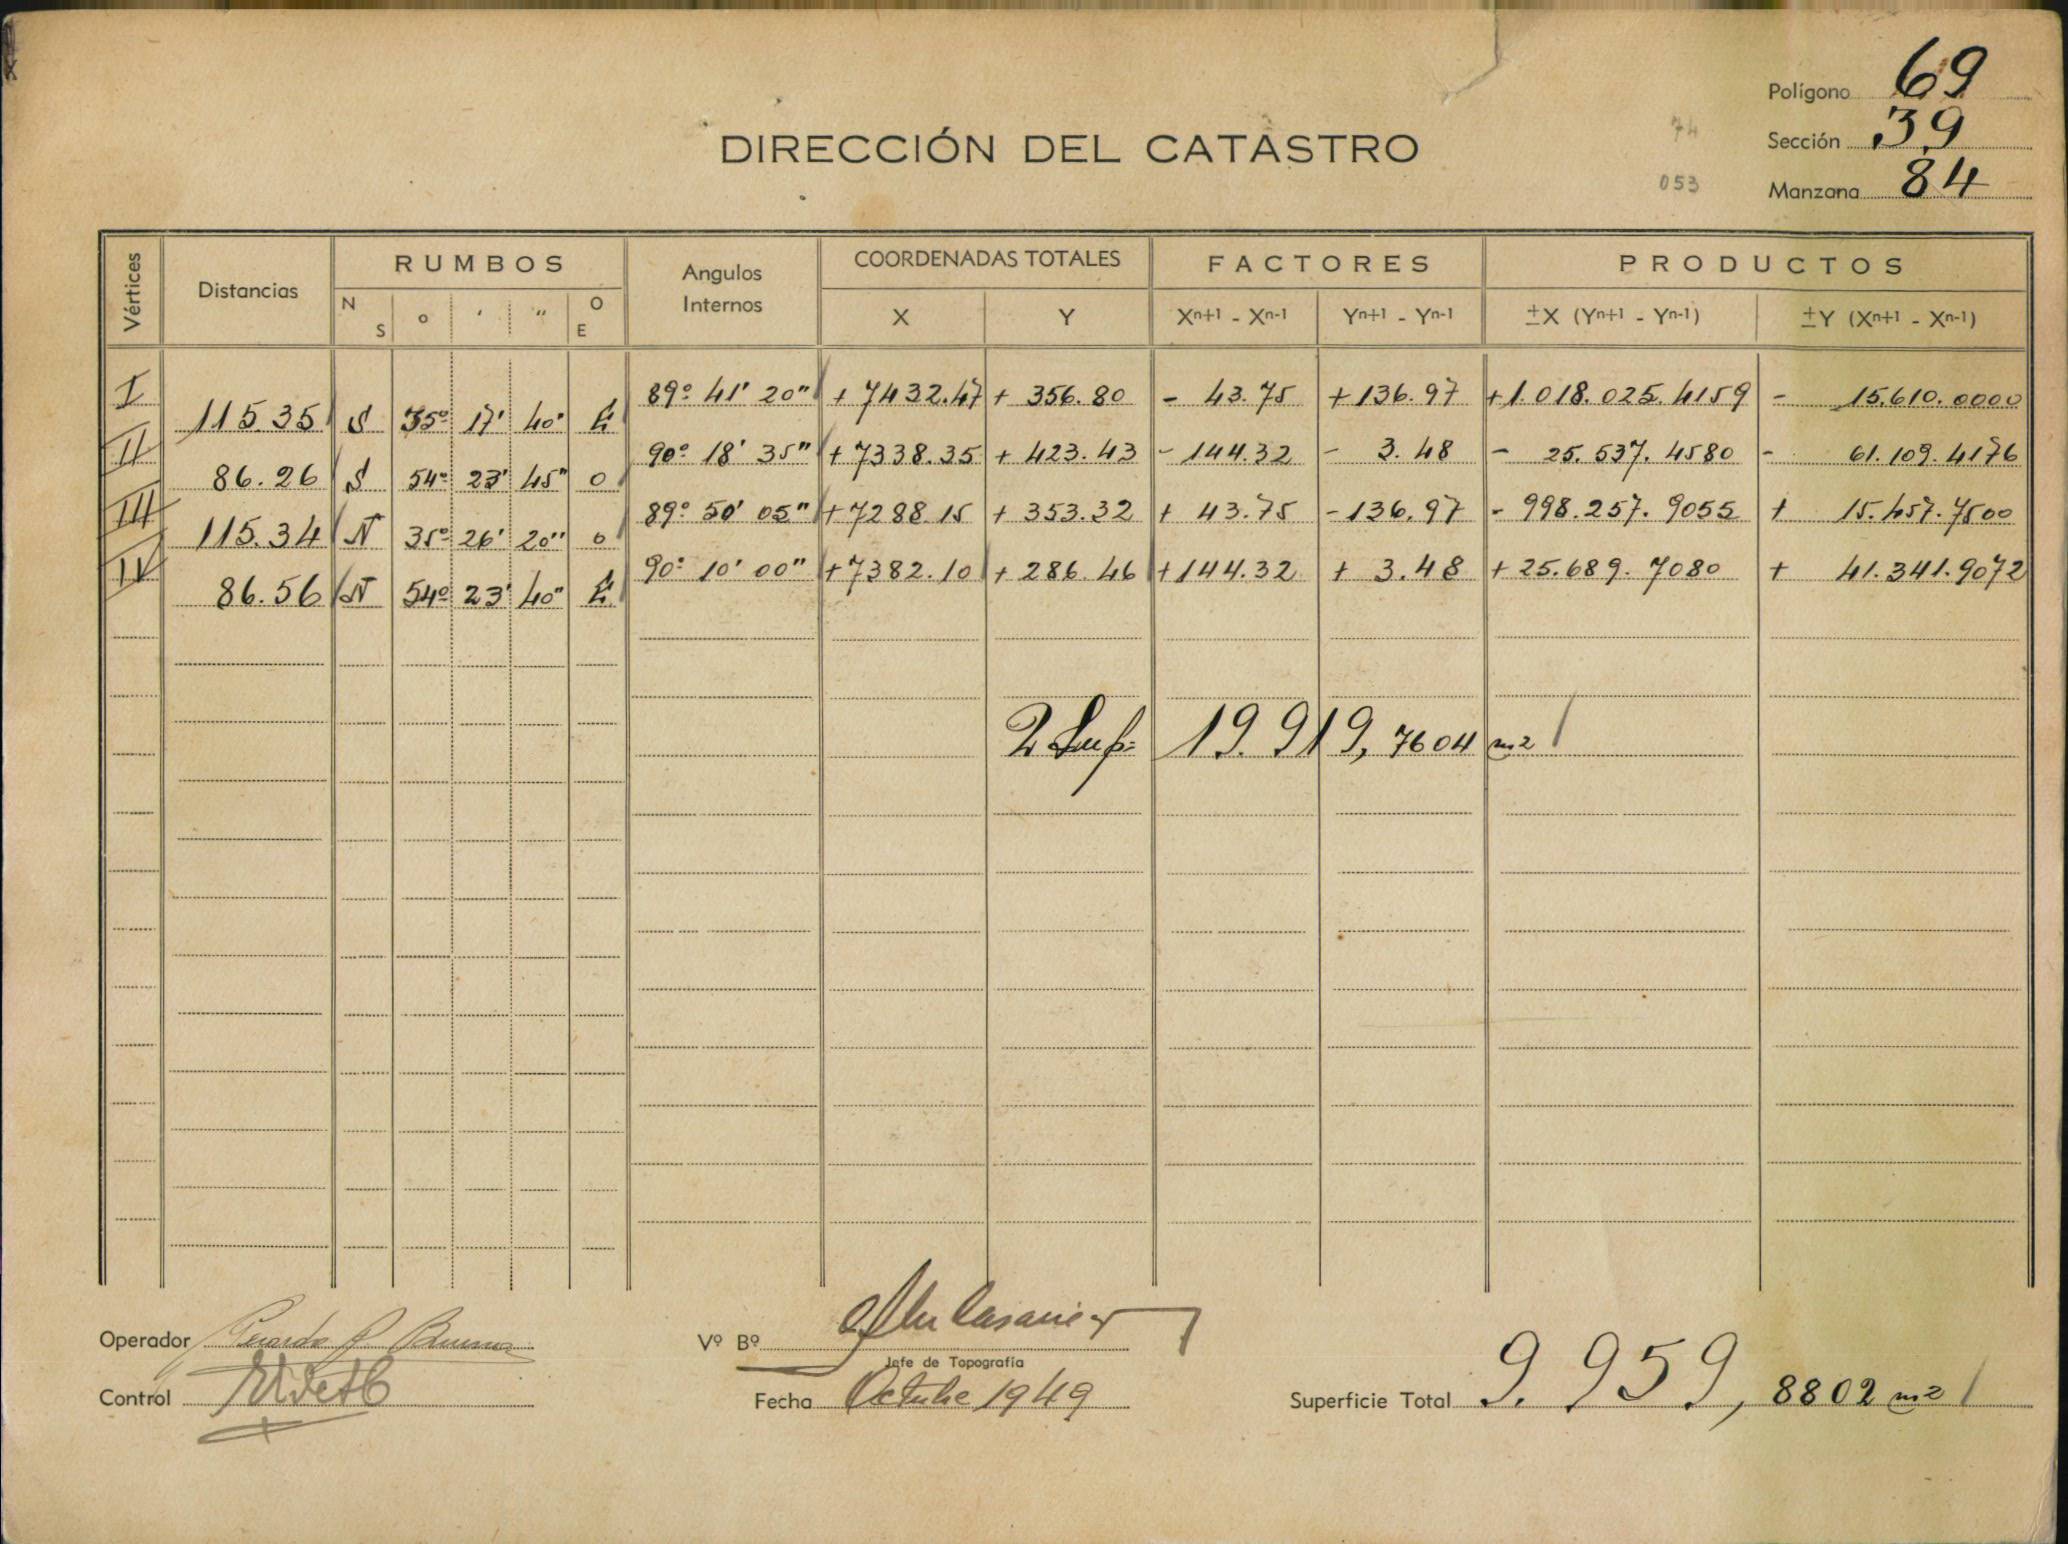 Polígono 69
74
Sección 39
DIRECCIÓN DEL CATASTRO
053
Manzana 84
Vértices Distancias RUMBOS Angulos Internos COORDENADAS TOTALES FACTORES PRODUCTOS
N S o ' " O E X Y Xn+1 - Xn-1 Yn+1 - Yn-1 ±X (Yn+1 - Yn-1) ±Y (Xn+1 - Xn-1)
I 89º 41' 20" + 7432.47 + 356.80 - 43.75 + 136.97 + 1.018.025.4159 - 15.610.0000
115.35 S 35º 17' 40" E
II 90º 18' 35" + 7338.35 + 423.43 - 144.32 - 3.48 - 25.537.4580 - 61.109.4176
86.26 S 54º 23' 45" O
III 89º 50' 05" + 7288.15 + 353.32 + 43.75 - 136.97 - 998.257.9055 + 15.457.7500
115.34 N 35º 26' 20" O
IV 90º 10' 00" + 7382.10 + 286.46 + 144.32 + 3.48 + 25.689.7080 + 41.341.9072
86.56 N 54º 23' 40" E
2 Sup: 19.919,7604 m2
Operador
Vº Bº
Jefe de Topografía
Control
Fecha Octubre 1949
Superficie Total 9.959,8802 m2